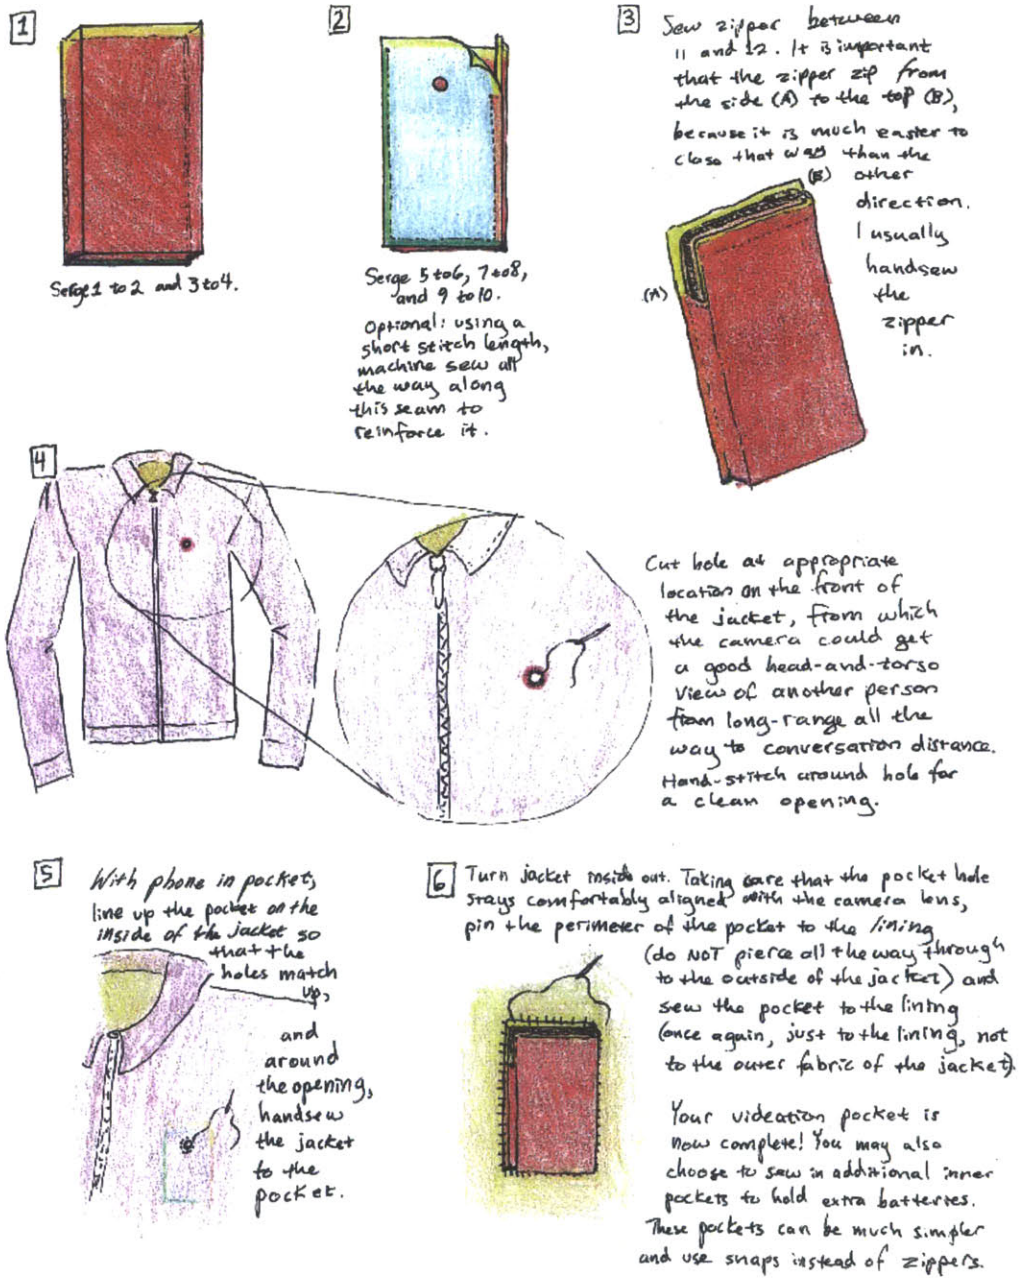 1
Serge 1 to 2 and 3 to 4.
2
Serge 5 to 6, 7 to 8,
and 9 to 10.
Optional: using a
short stitch length,
machine sew all
the way along
this seam to
reinforce it.
3
Sew zipper between
11 and 12. It is important
that the zipper zip from
the side (A) to the top (B),
because it is much easier to
close that way than the
other
direction.
I usually
handsew
the
zipper
in.
(B)
(A)
4
Cut hole at appropriate
location on the front of
the jacket, from which
the camera could get
a good head-and-torso
view of another person
from long-range all the
way to conversation distance.
Hand-stitch around hole for
a clean opening.
5
With phone in pocket,
line up the pocket on the
inside of the jacket so
that the
holes match
up,
and
around
the opening,
handsew
the jacket
to the
pocket.
6
Turn jacket inside out. Taking care that the pocket hole
stays comfortably aligned with the camera lens,
pin the perimeter of the pocket to the lining
(do NOT pierce all the way through
to the outside of the jacket) and
sew the pocket to the lining
(once again, just to the lining, not
to the outer fabric of the jacket).
Your videation pocket is
now complete! You may also
choose to sew in additional inner
pockets to hold extra batteries.
These pockets can be much simpler
and use snaps instead of zippers.